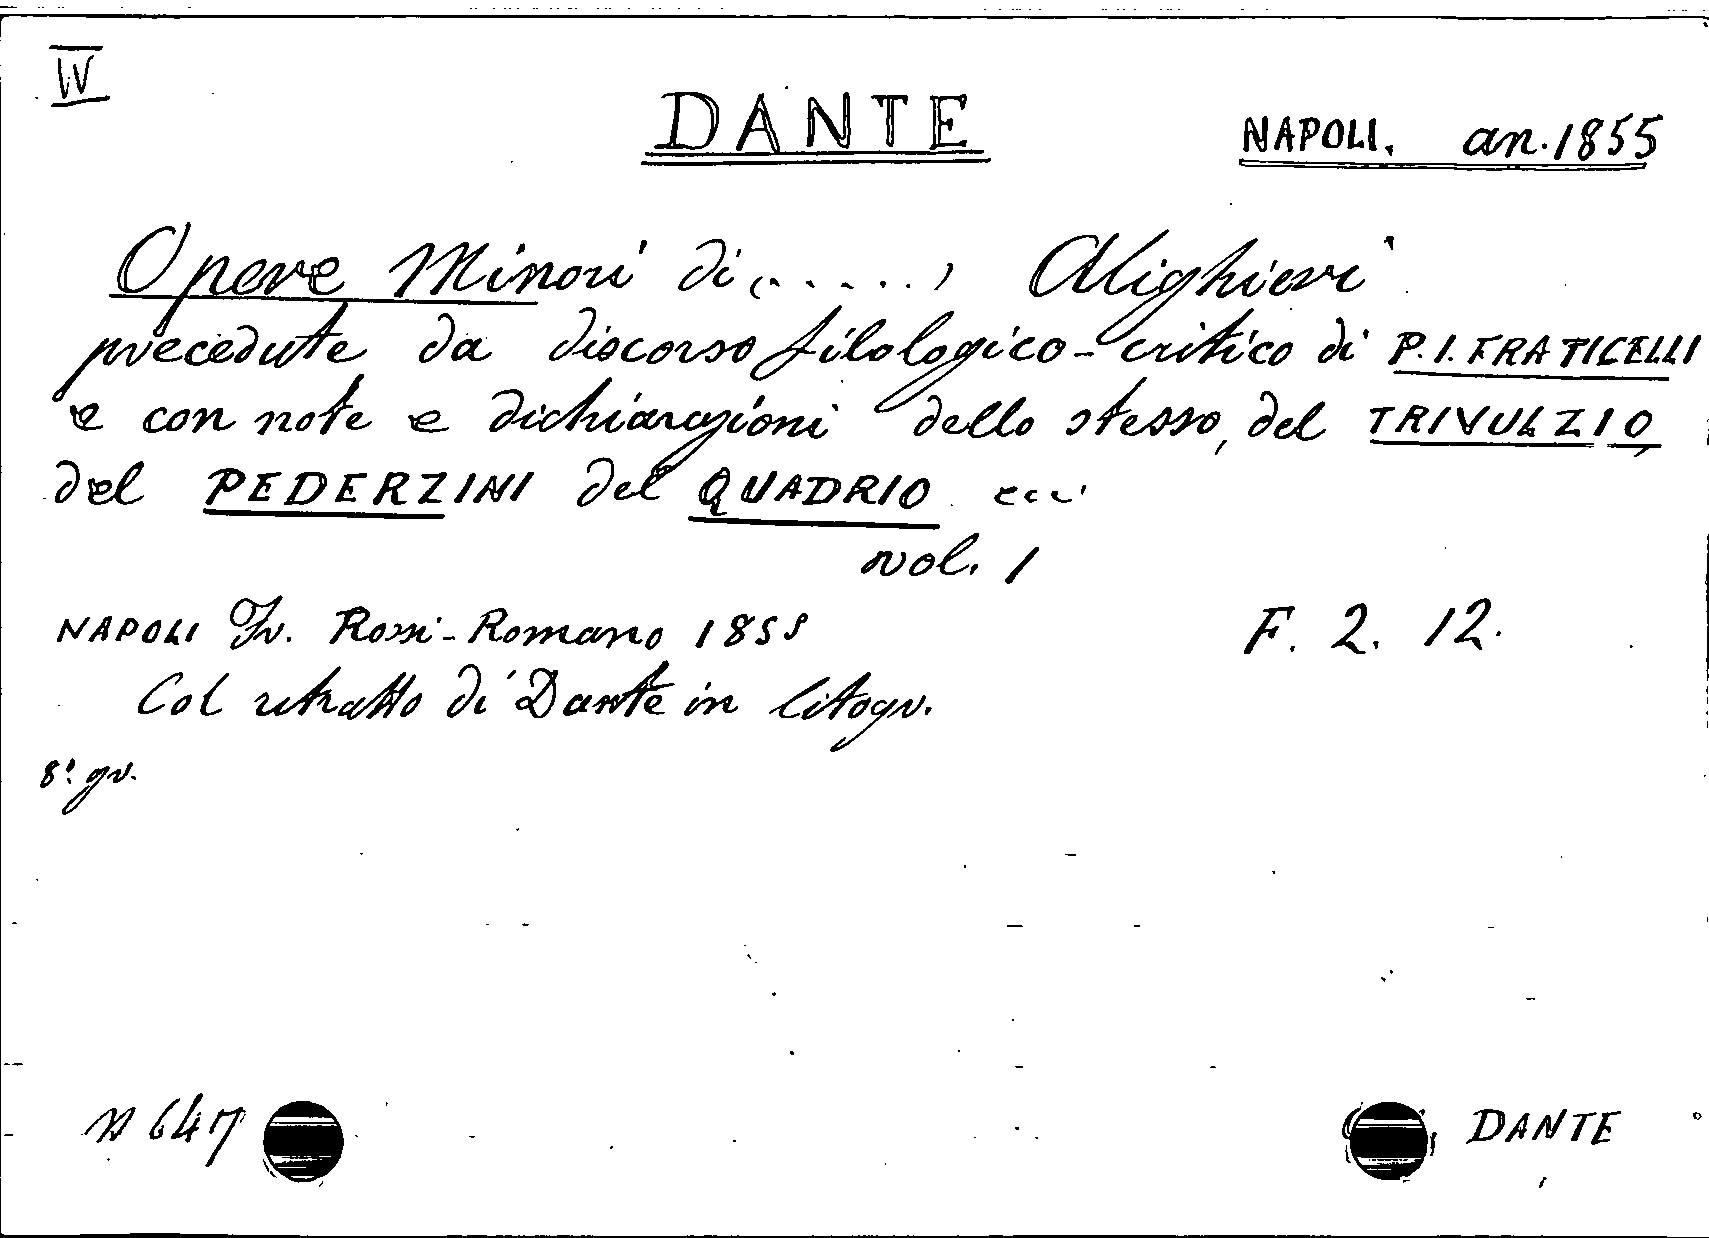 IV
DANTE
NAPOLI. an. 1855
Opere Minori di (.....) Alighieri
precedute da discorso filologico-critico di P. I. FRATICELLI
e con note e dichiarazioni dello stesso, del TRIVULZIO,
del PEDERZINI del QUADRIO ecc.
vol. 1
NAPOLI Fr. Rossi-Romano 1855
F. 2. 12.
Col ritratto di Dante in litogr.
8º gr.
N 647
DANTE